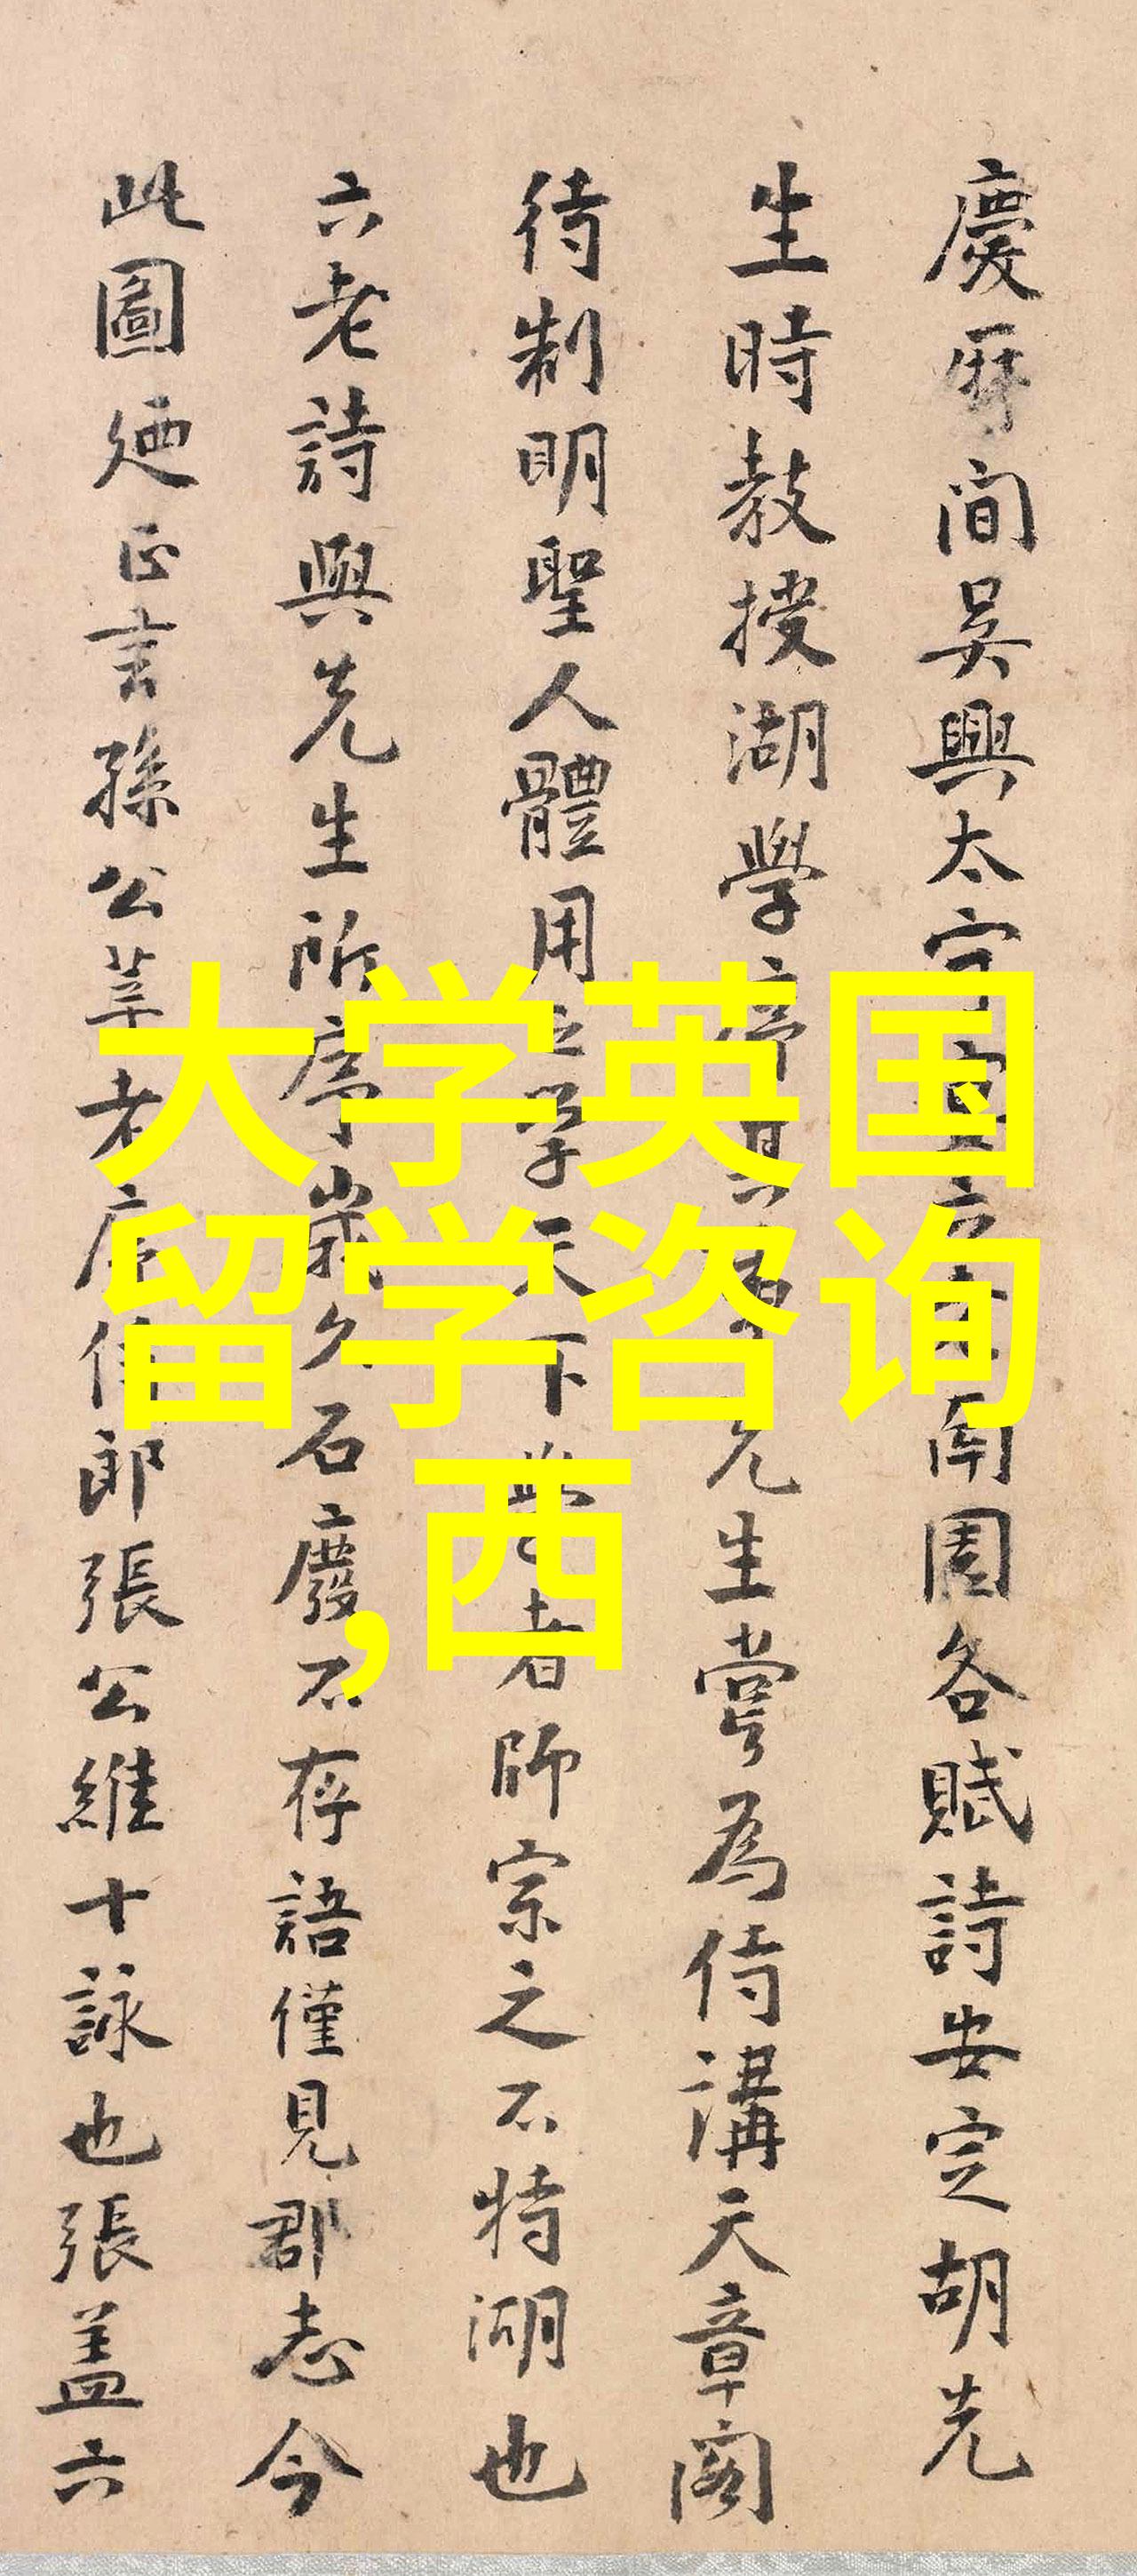 慶曆間吳興太守宴六老南園各賦詩安定胡先
生時教授湖學序其事先生嘗為侍講天章閣
待制明聖人體用之學天下學者師宗之不特湖也
六老詩與先生所序歲久石廢不存語僅見郡志今
此圖廼正言孫公莘老居侍郎張公維十詠也張蓋六
大学英国
留学咨询
,西